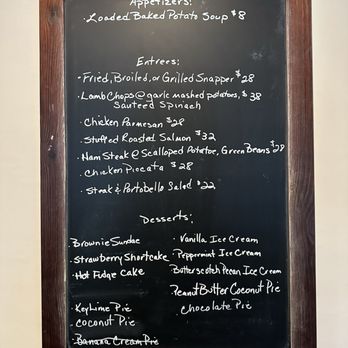 Appetizers:
· Loaded Baked Potato Soup $8
Entrees:
· Fried, Broiled, or Grilled Snapper $28
· Lamb Chops @ garlic mashed potatoes, $38
Sauteed Spinach
· Chicken Parmesan $28
· Stuffed Roasted Salmon $32
· Ham Steak @ Scalloped Potatoe, Green Beans $28
· Chicken Piccata $28
· Steak & Portobello Salad $22
Desserts:
· Brownie Sundae
· Strawberry Shortcake
· Hot Fudge Cake
· Key Lime Pie
· Coconut Pie
· Banana Cream Pie
· Vanilla Ice Cream
Peppermint Ice Cream
Butterscotch Pecan Ice Cream
Peanut Butter Coconut Pie
Chocolate Pie